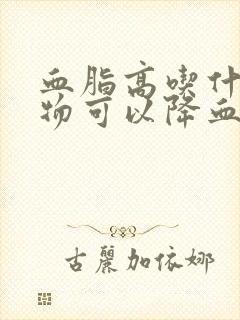 血脂高喫什
物可以降血
古麗加依娜